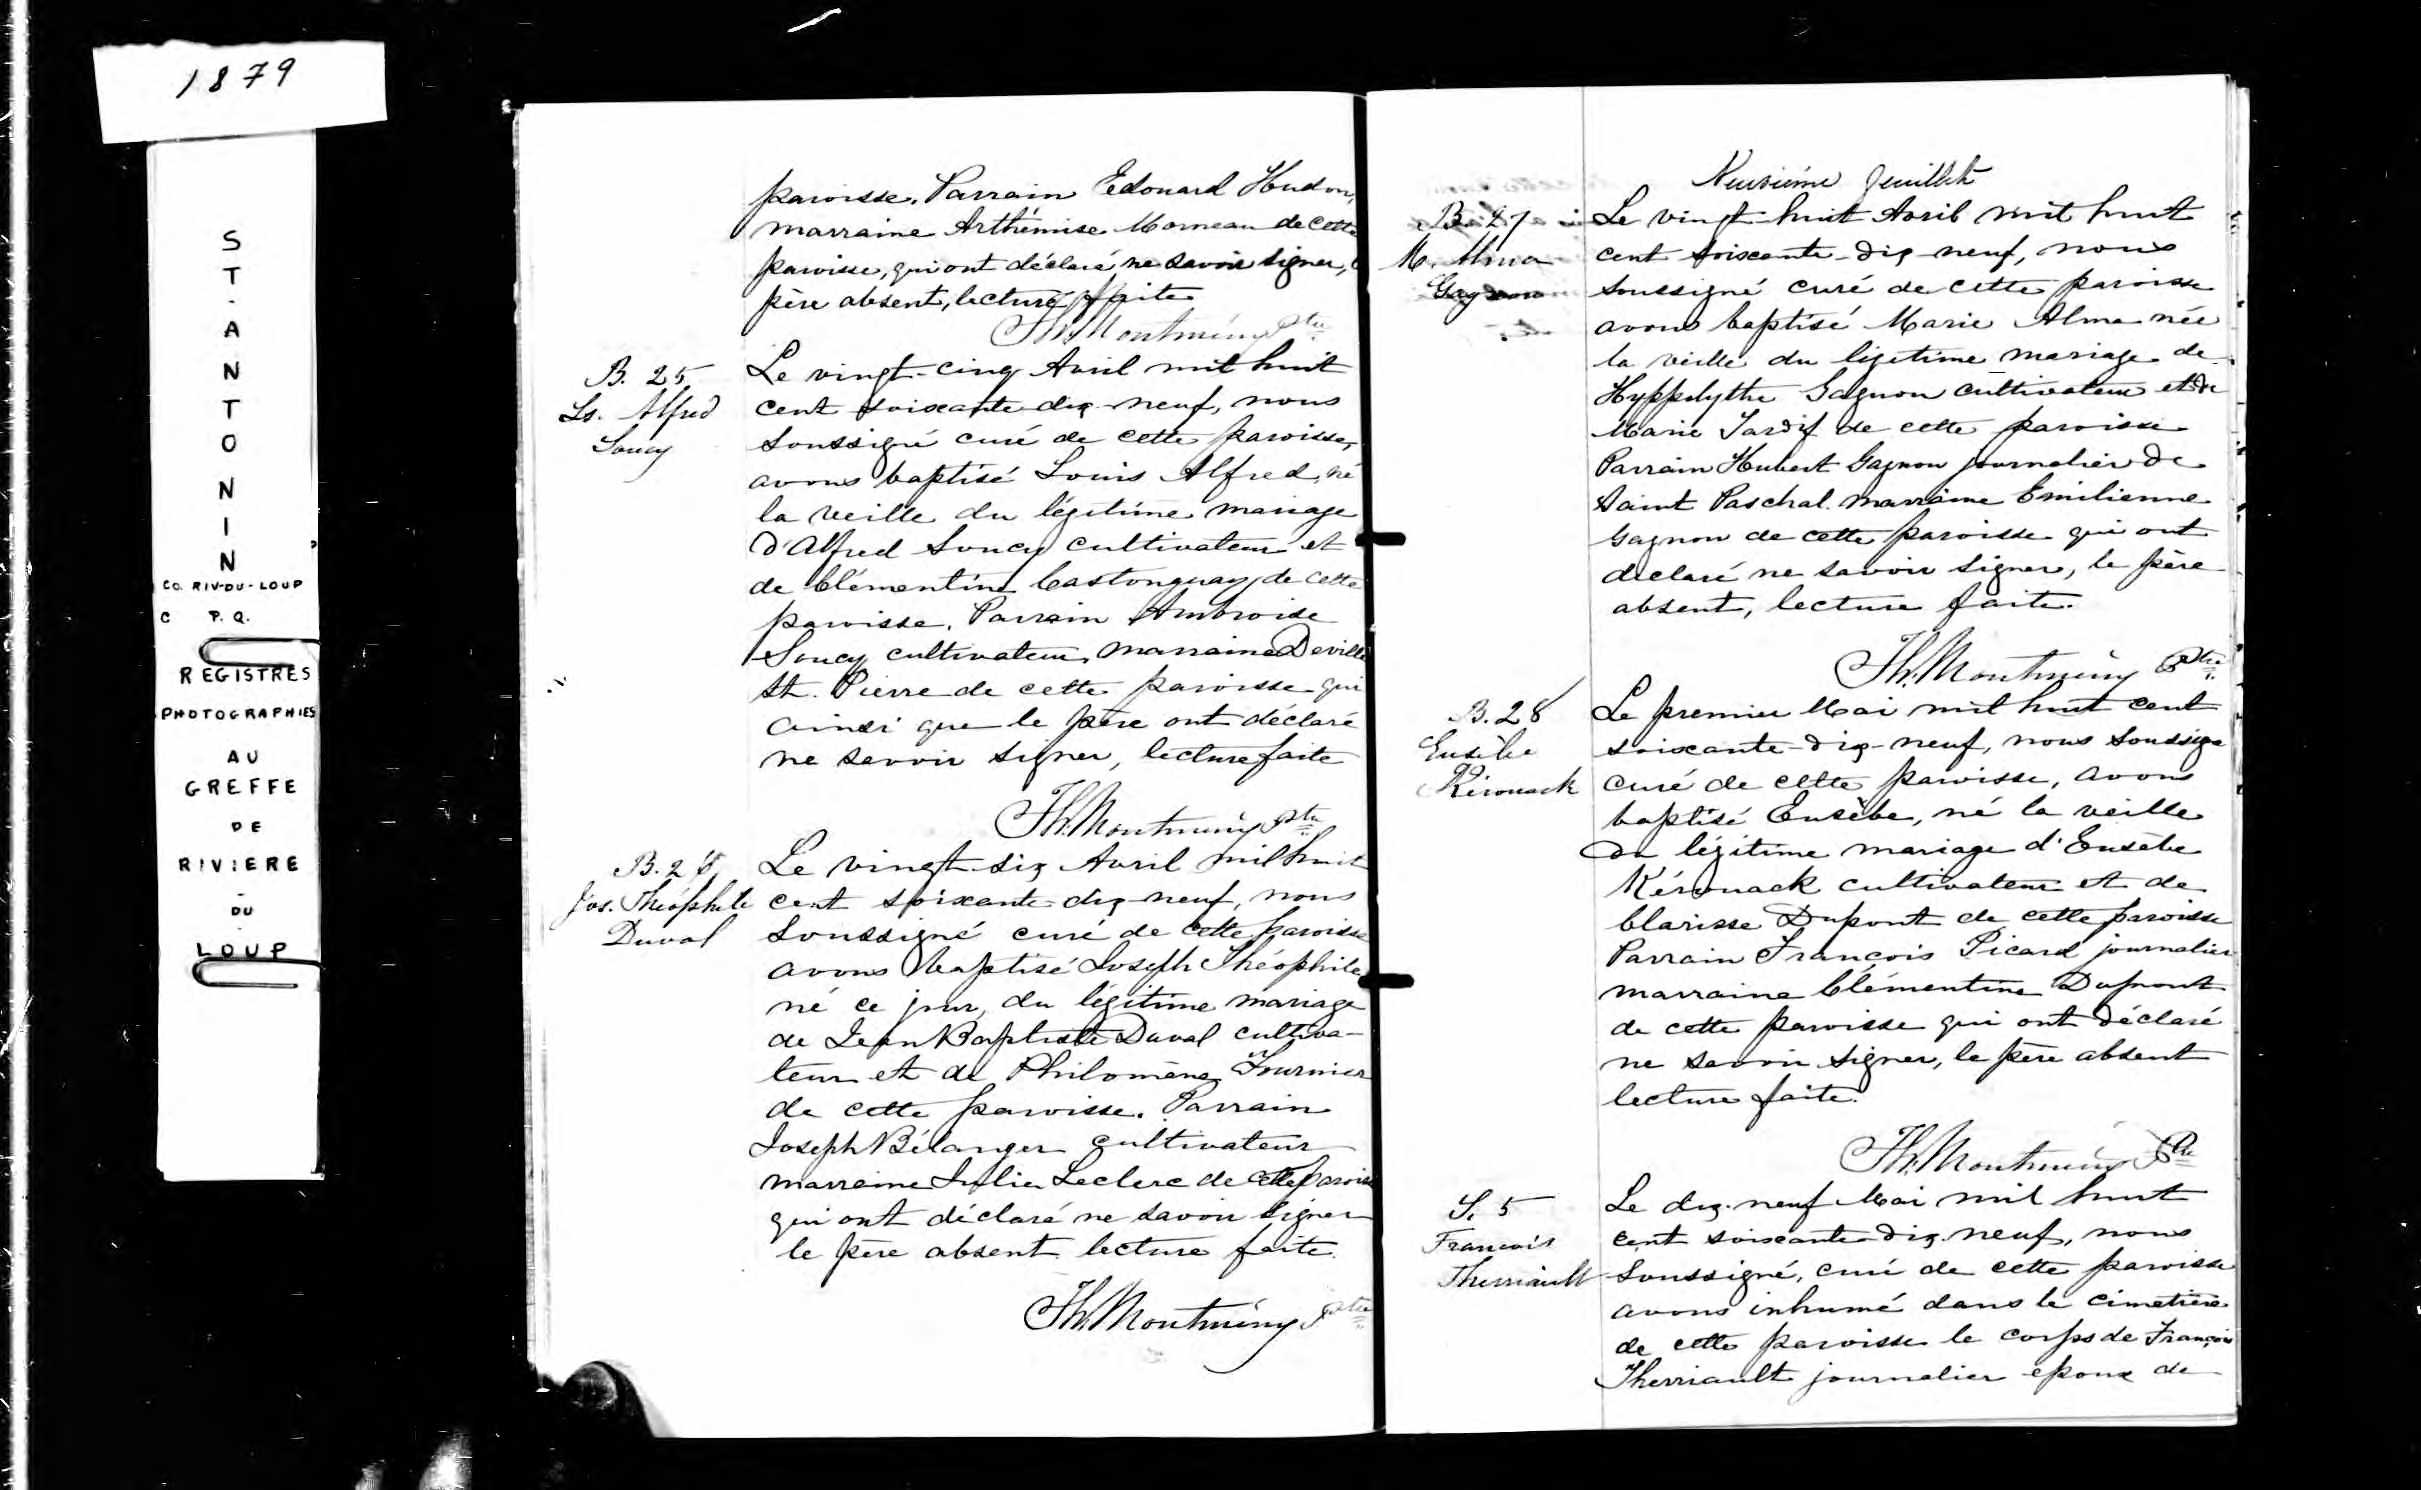 1879
S
T
.
A
N
T
O
N
I
N
CO. RIV-DU-LOUP
C P.Q.
REGISTRES
PHOTOGRAPHIES
AU
GREFFE
DE
RIVIERE
-
DU
-
LOUP
paroisse. Parrain Edouard Hudon,
marraine Arthémise Morneau de cette
paroisse, qui ont déclaré ne savoir signer,
père absent, lecture faite
Th. Montminy Ptre
B. 25
Ls. Alfred
Soucy
Le vingt-cinq Avril mil huit
cent soixante-dix-neuf, nous
soussigné curé de cette paroisse,
avons baptisé Louis Alfred, né
la veille du légitime mariage
d'Alfred Soucy cultivateur et
de Clémentine Castonguay, de cette
paroisse. Parrain Ambroise
Soucy cultivateur, marraine
St. Pierre de cette paroisse qui
ainsi que le père ont déclaré
ne savoir signer, lecture faite
Th. Montminy Ptre
B. 26
Jos. Théophile
Duval
Le vingt-six Avril mil huit
cent soixante-dix-neuf, nous
soussigné curé de cette paroisse
avons baptisé Joseph Théophile
né ce jour, du légitime mariage
de Jean Baptiste Duval cultiva-
teur et de Philomène Fournier
de cette paroisse. Parrain
Joseph Bélanger cultivateur
marraine Julie Leclerc de cette paroisse
qui ont déclaré ne savoir signer
le père absent lecture faite.
Th. Montminy Ptre
Neuvième feuillet
B. 27
M. Alma
Gagnon
Le vingt-huit Avril mil huit
cent soixante-dix-neuf, nous
soussigné curé de cette paroisse
avons baptisé Marie Alma née
la veille du légitime mariage de
Hyppolythe Gagnon cultivateur et de
Marie Tardif de cette paroisse
Parrain Hubert Gagnon journalier de
Saint Paschal. marraine Emilienne
Gagnon de cette paroisse qui ont
déclaré ne savoir signer, le père
absent, lecture faite.
Th. Montminy Ptre
B. 28
Eusèbe
Kérouack
Le premier Mai mil huit cent
soixante-dix-neuf, nous soussigné
curé de cette paroisse, avons
baptisé Eusèbe, né la veille
du légitime mariage d'Eusèbe
Kérouack cultivateur et de
Clarisse Dupont de cette paroisse
Parrain François Picard journalier
marraine Clémentine Dupont
de cette paroisse qui ont déclaré
ne savoir signer, le père absent
lecture faite.
Th. Montminy Ptre
S. 5
François
Therriault
Le dix-neuf Mai mil huit
cent soixante-dix-neuf, nous
soussigné, curé de cette paroisse
avons inhumé dans le cimetière
de cette paroisse le corps de François
Therriault journalier époux de